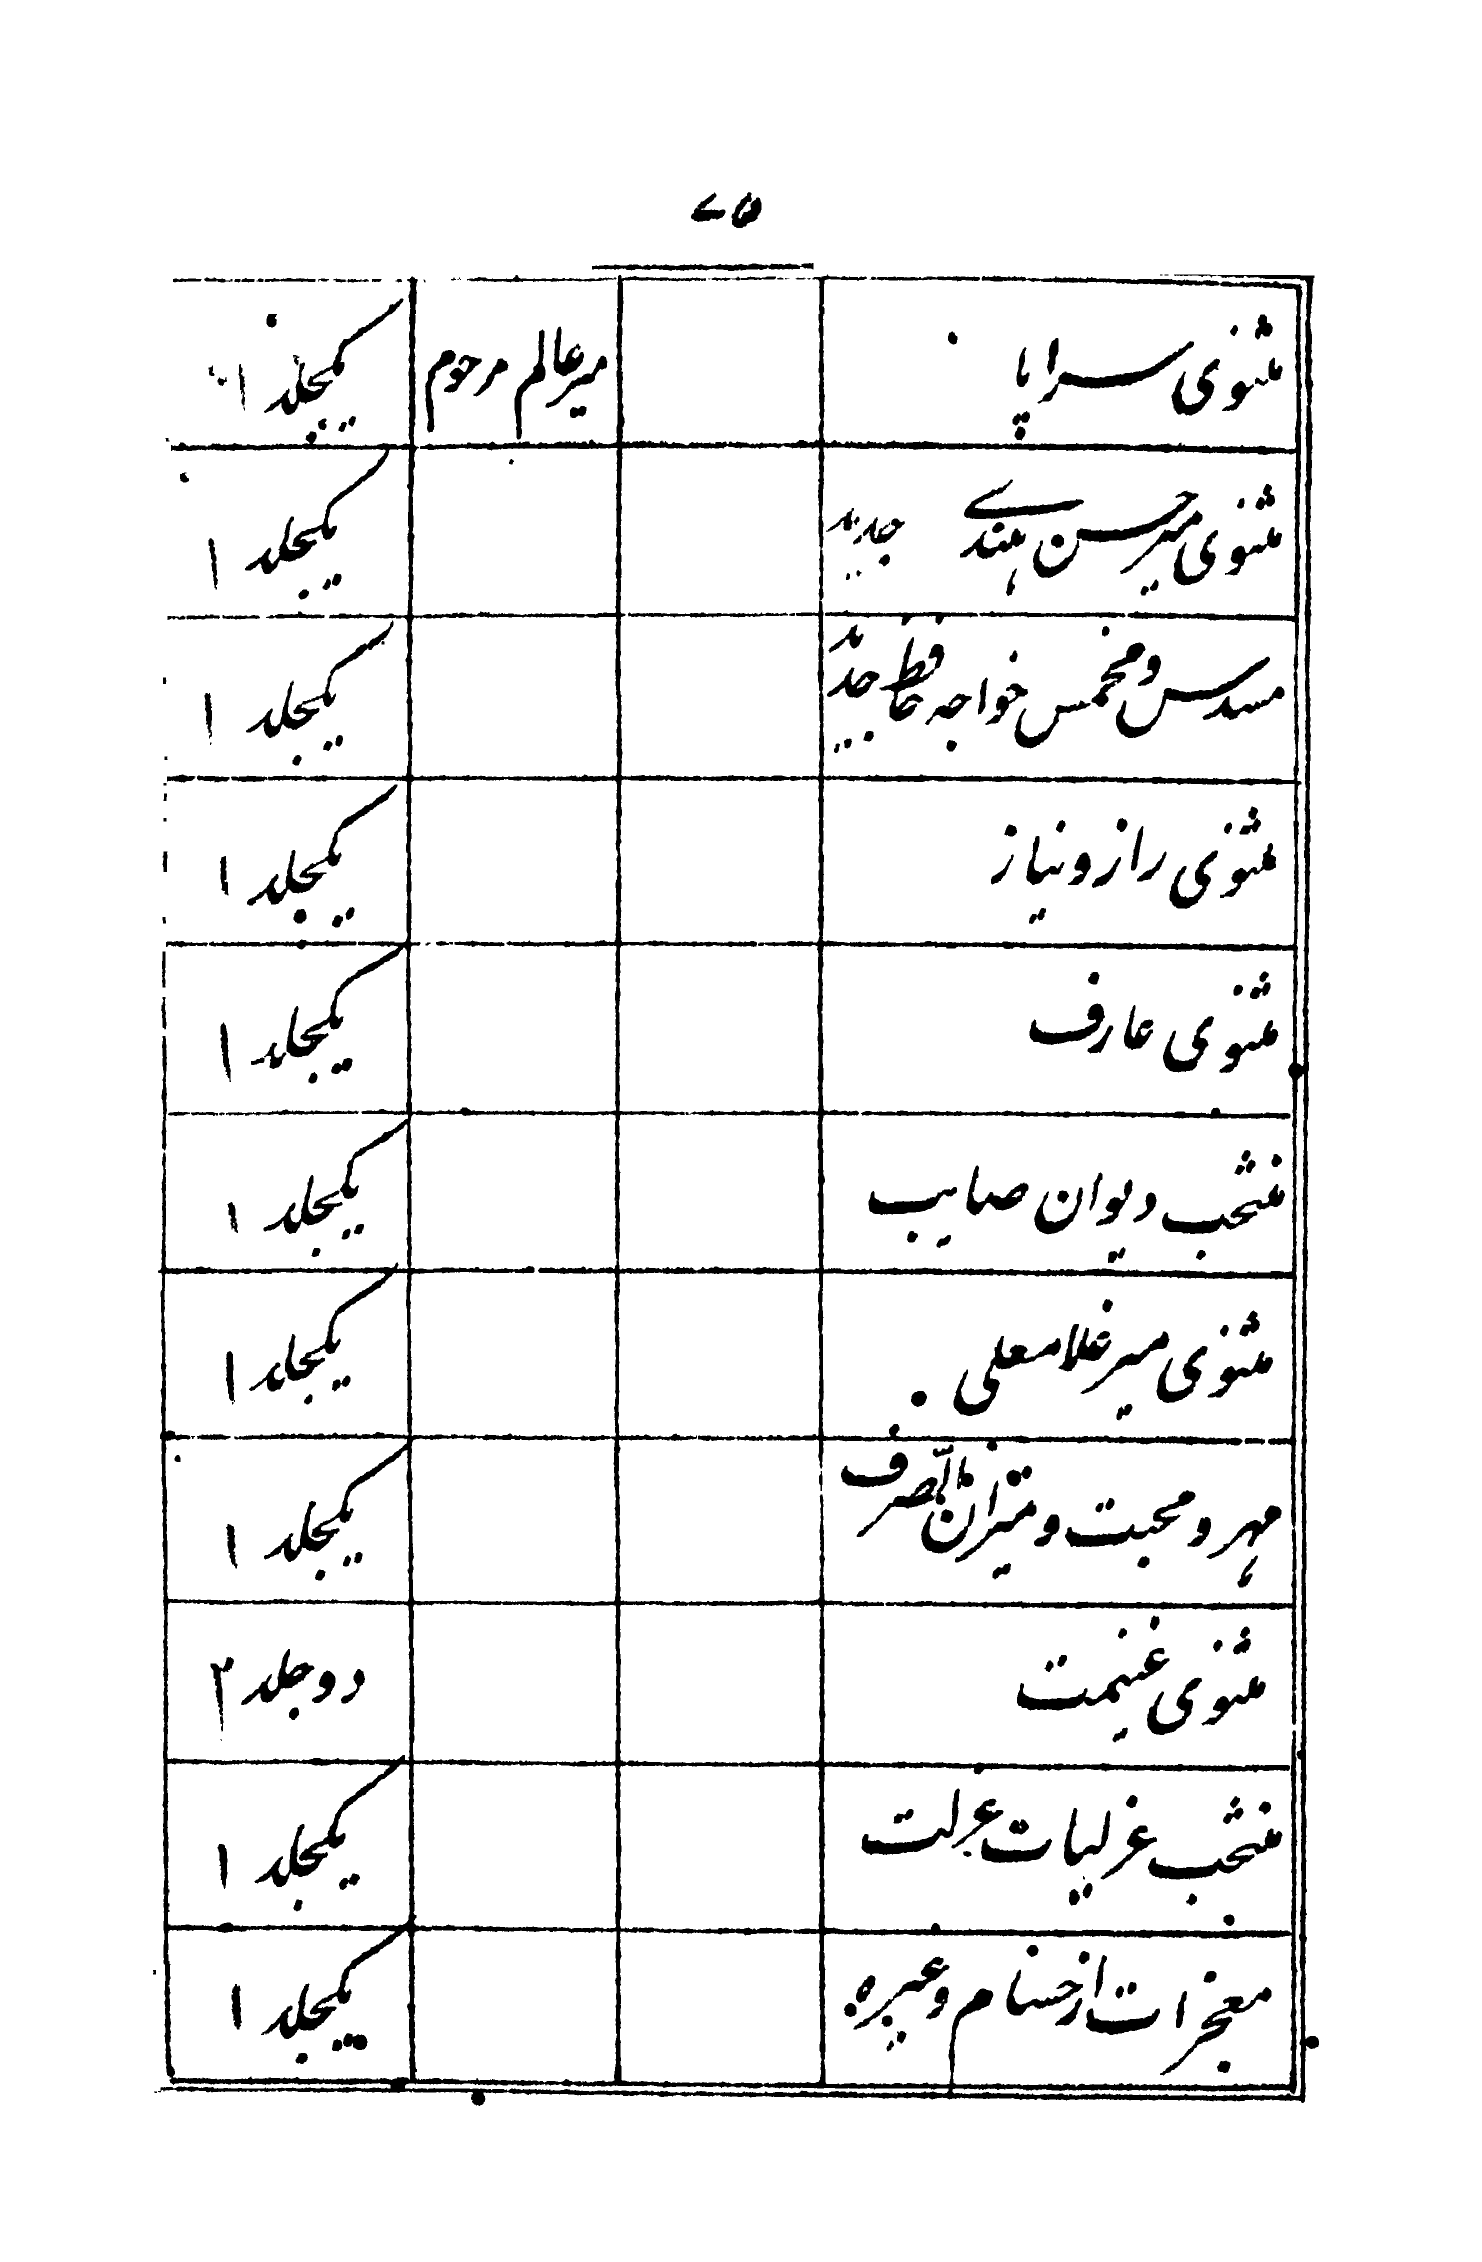 ۷۵
مثنوی سراپا میر عالم مرحوم یکجلد ۱
مثنوی میر حسن ہندے جدید یکجلد ۱
مسدس و مخمس خواجہ حافظ جدید یکجلد ۱
مثنوی راز و نیاز یکجلد ۱
مثنوی عارف یکجلد ۱
منتخب دیوان صایب یکجلد ۱
مثنوی میر غلامعلی یکجلد ۱
مہر و محبت و میزان الصرف یکجلد ۱
مثنوی غنیمت دو جلد ۲
منتخب غزلیات عزلت یکجلد ۱
معجزات از وغیرہ یکجلد ۱